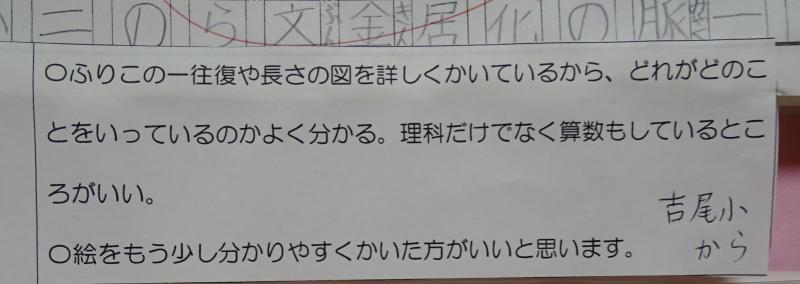 二のら文金居化の脈一
〇ふりこの一往復や長さの図を詳しくかいているから、どれがどのこ
とをいっているのかよく分かる。理科だけでなく算数もしているとこ
ろがいい。
〇絵をもう少し分かりやすくかいた方がいいと思います。
吉尾小
から